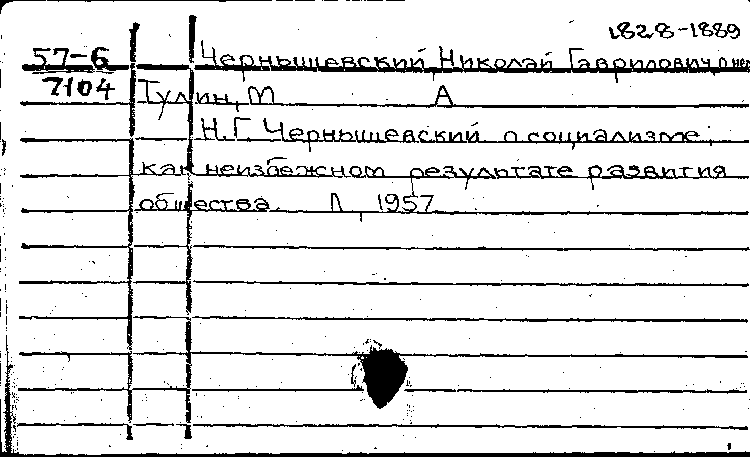 1828-1889
57-6 Чернышевский, Николай Гаврилович, о нем
7104 Тулин, М А
Н.Г. Чернышевский о социализме,
как неизбежном результате развития
общества. Л, 1957